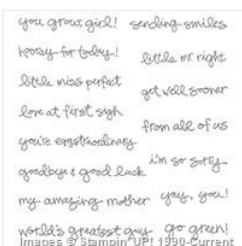 you grow, girl!
sending smiles
hooray for today!
little mr right
little miss perfect
get well sooner
love at first sigh
from all of us
you're eggstraordinary
i'm so sorry
goodbye & good luck
yay, you!
my amazing mother
world's greatest guy
go green!
Images © Stampin' UP! 1990-Current